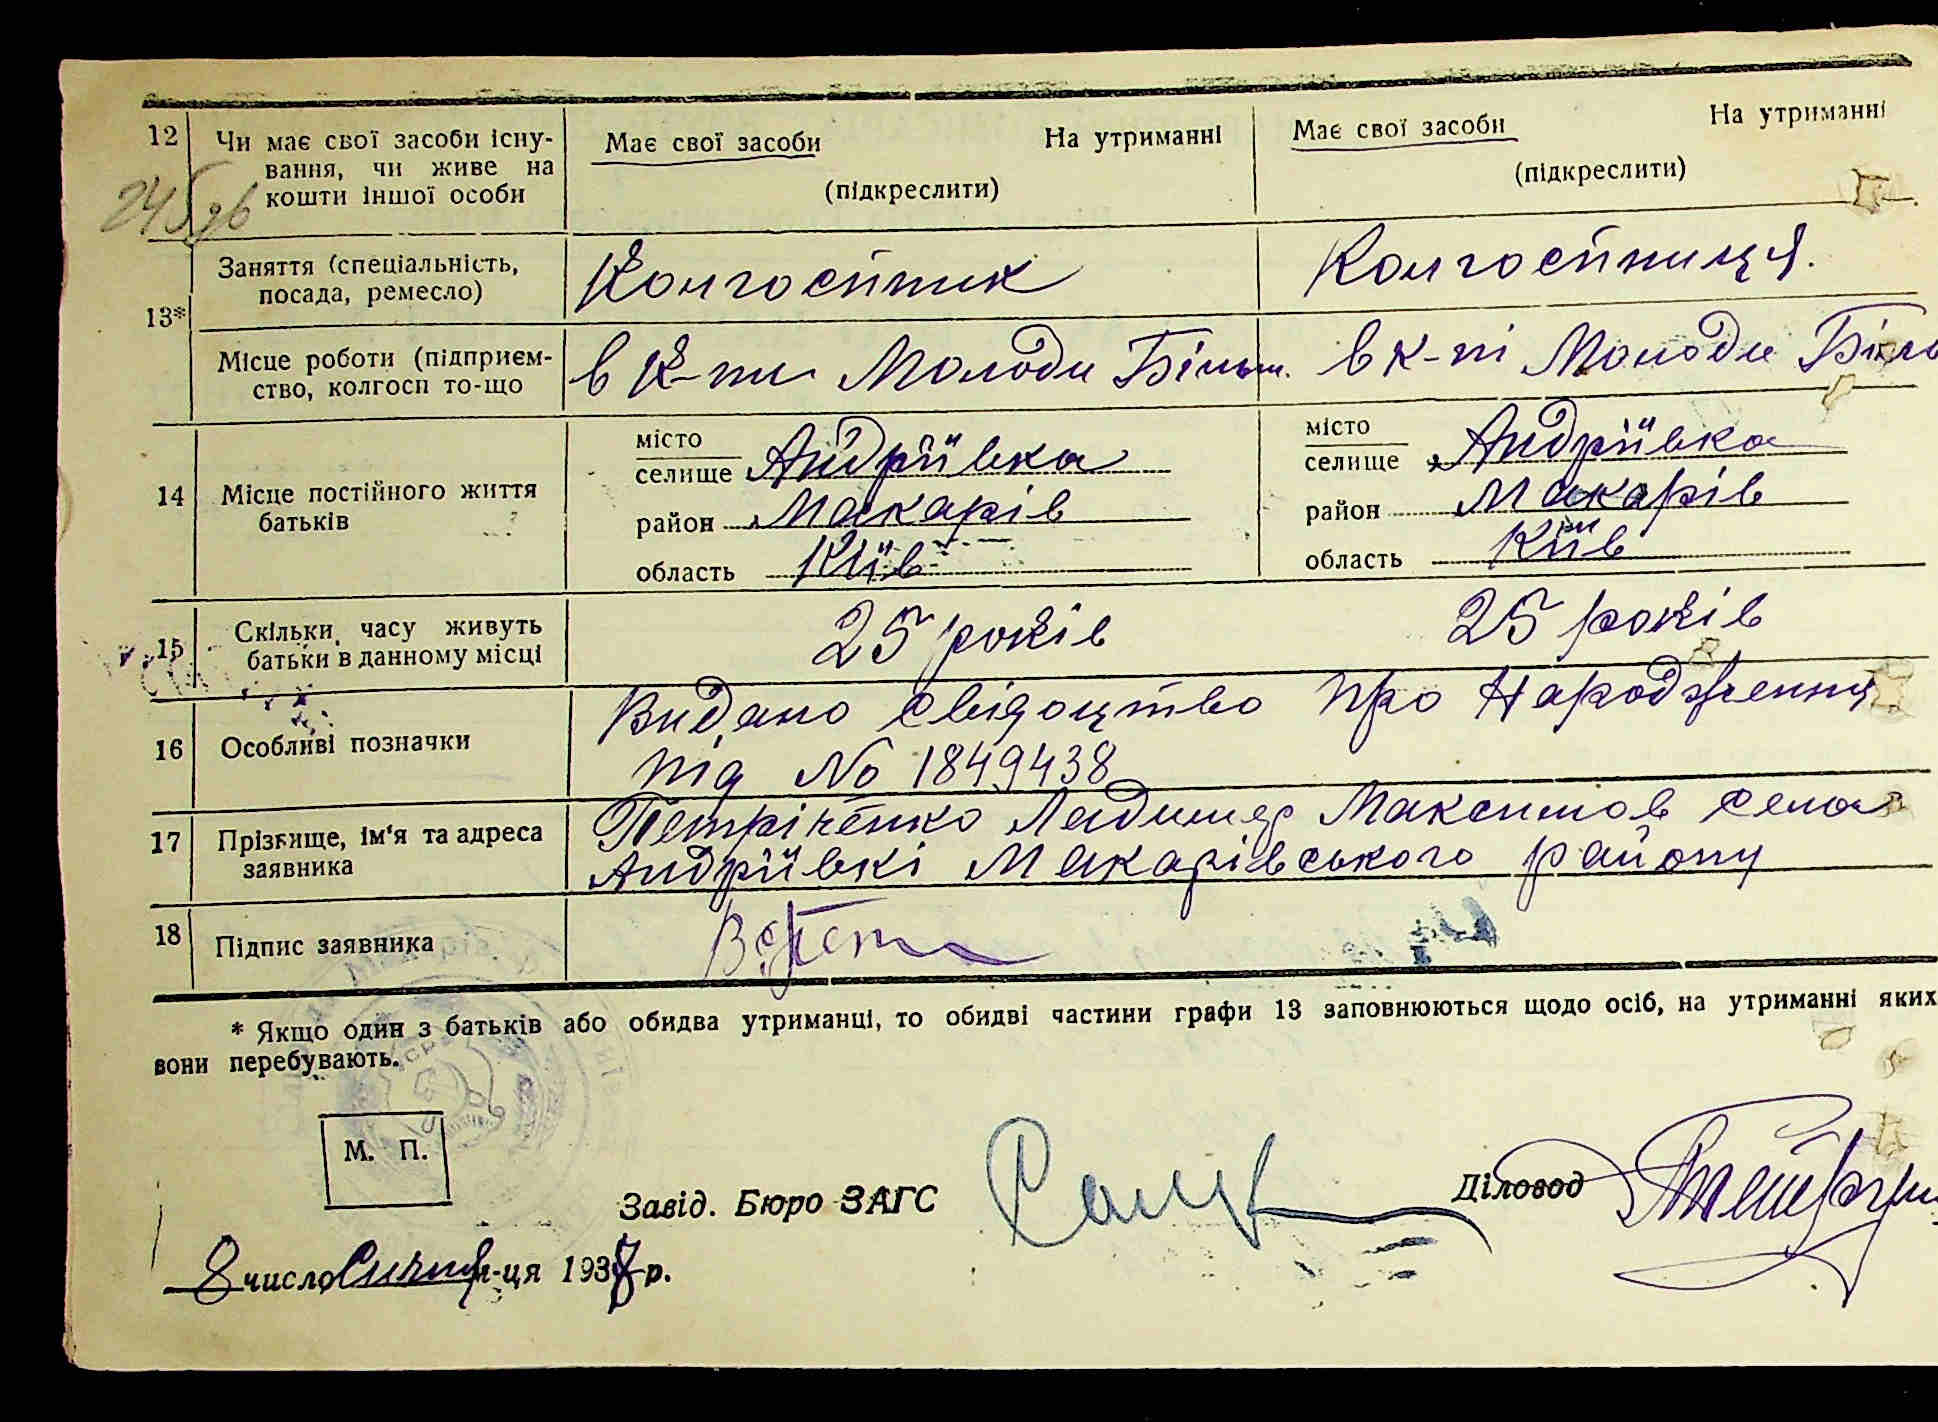 12 Чи має свої засоби існу- Має свої засоби На утриманні Має свої засоби На утриманні
вання, чи живе на
кошти іншої особи (підкреслити) (підкреслити)
Заняття (спеціальність, Колгоспник Колгоспниця.
посада, ремесло)
13*
Місце роботи (підприєм- в к-пи Молоди Більш. в к-пі Молоди Біль
ство, колгосп то-що
14 Місце постійного життя
батьків
місто місто
селище Андріївка селище Андріївка
район Макарів район Макарів
область Київ область Київ
15 Скільки часу живуть 25 років 25 років
батьки в данному місці
16 Особливі позначки Видано свідоцтво про Народження
під № 1849438
17 Прізвище, ім'я та адреса Петріченко Ладимер Максимов села
заявника Андріївкі Макарівського району
18 Підпис заявника
* Якщо один з батьків або обидва утриманці, то обидві частини графи 13 заповнюються щодо осіб, на утриманні яких
вони перебувають.
М. П.
Завід. Бюро ЗАГС Діловод
8 число Січня м-ця 1938 р.